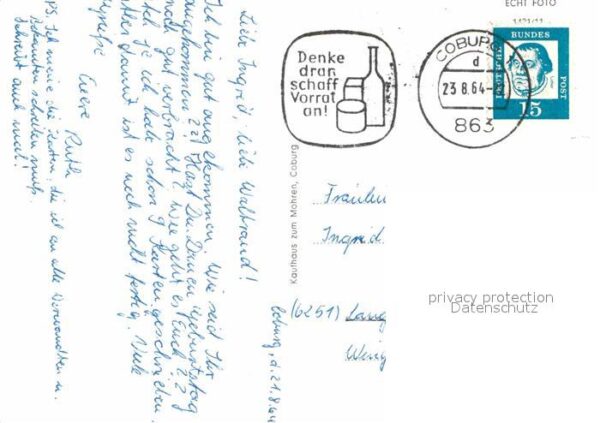 ECHT FOTO
Denke
dran
schaff
Vorrat
an!
COBURG
d
23.8.64
863
DEUTSCHE BUNDESPOST
15
Coburg, d. 21.8.64
Liebe Ingrid, liebe Waltraud!
Ich bin gut angekommen. Wie seid Ihr
angekommen??? Hast Du Deinen Geburtstag
noch gut verbracht? Wie geht es Euch???
Ich habe schon 9 Karten geschrieben.
damit ist es noch nicht fertig. Viele
Eure Ruth
PS. Ich meine die Karten, die ich an alle Verwandten u.
Bekannten schreiben muß.
Schreibt auch mal!
Kaufhaus zum Mohren, Coburg
Fräulein
Ingrid
(6251) Lang
privacy protection
Datenschutz